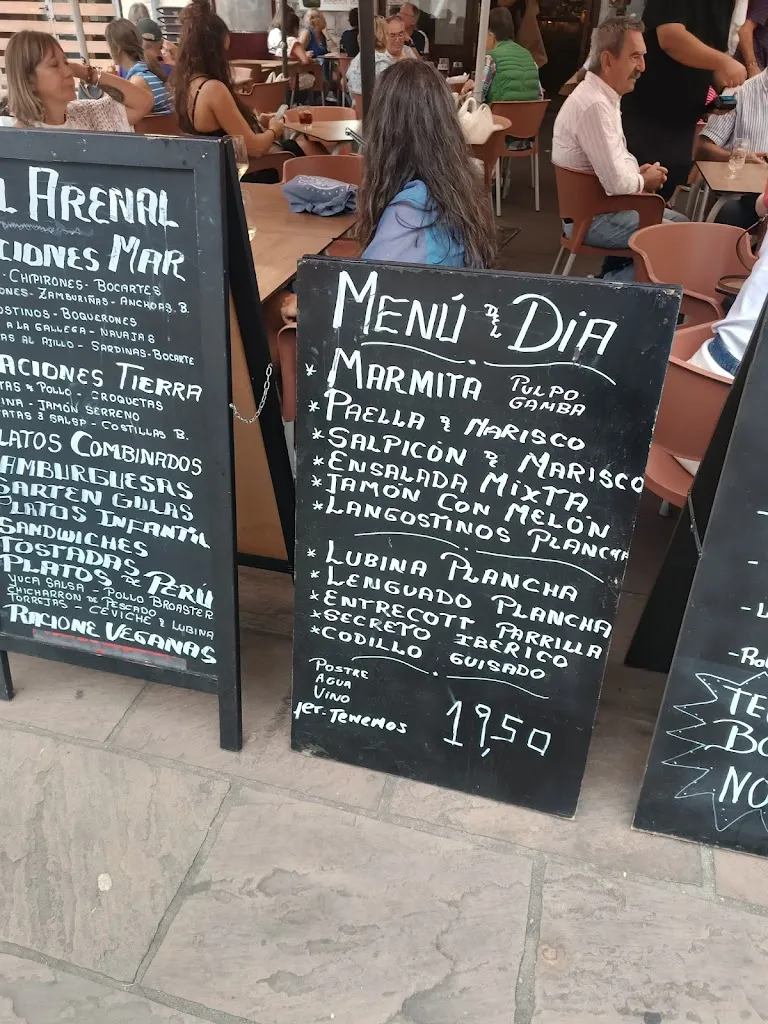 L ARENAL
CIONES MAR
- CHIPIRONES - BOCARTES
ONES - ZAMBURIÑAS - ANCHOAS B.
OSTINOS - BOQUERONES
A LA GALLEGA - NAVAJAS
AS AL AJILLO - SARDINAS - BOCARTE
ACIONES TIERRA
POLLO - CROQUETAS
INA - JAMÓN SERRENO
ATAS 3 SALSA - COSTILLAS B.
LATOS COMBINADOS
AMBURGUESAS
SARTEN GULAS
PLATOS INFANTIL
SANDWICHES
TOSTADAS
PLATOS DE PERÚ
YUCA SALSA - POLLO BROASTER
CHICHARRON DE PESCADO
TORREJAS - CEVICHE LUBINA
RACIONE VEGANAS
MENÚ DEL DIA
* MARMITA PULPO GAMBA
* PAELLA DE MARISCO
* SALPICÓN DE MARISCO
* ENSALADA MIXTA
* JAMÓN CON MELÓN
* LANGOSTINOS PLANCHA
* LUBINA PLANCHA
* LENGUADO PLANCHA
* ENTRECOTT PARRILLA
* SECRETO IBÉRICO
* CODILLO GUISADO
POSTRE
AGUA
VINO
19,50
TE
BO
NO